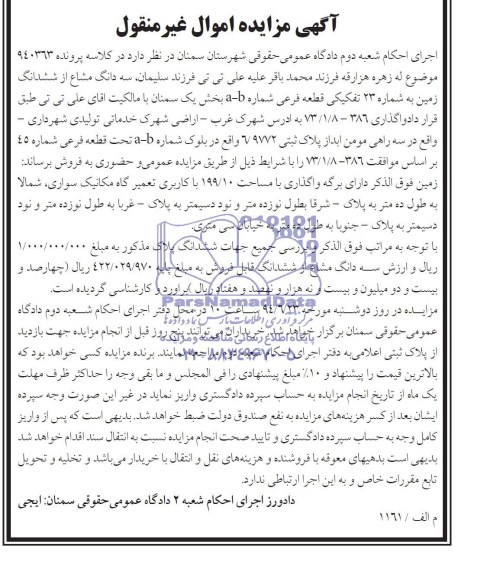 آگهی مزایده اموال غیرمنقول
اجرای احکام شعبه دوم دادگاه عمومی‌حقوقی شهرستان سمنان در نظر دارد در کلاسه پرونده ۹۴۰۳۶۳
موضوع له زهره هزارقه فرزند محمد باقر علیه علی تی تی فرزند سلیمان، سه دانگ مشاع از ششدانگ
زمین به شماره ۲۳ تفکیکی قطعه فرعی شماره a-b بخش یک سمنان با مالکیت اقای علی تی تی طبق
قرار دادواگذاری ۳۸۶ – ۷۳/۱/۸ به ادرس شهرک غرب – اراضی شهرک خدماتی تولیدی شهرداری –
واقع در سه راهی مومن ابداز پلاک ثبتی ۶/۹۷۷۲ واقع در بلوک شماره a-b تحت قطعه فرعی شماره ۴۵
بر اساس موافقت ۳۸۶–۷۳/۱/۸ را با شرایط ذیل از طریق مزایده عمومی‌و حضوری به فروش برساند:
زمین فوق الذکر دارای برگه واگذاری با مساحت ۱۹۹/۱۰ با کاربری تعمیر گاه مکانیک سواری، شمالا
به طول ده متر به پلاک – شرقا بطول نوزده متر و نود دسیمتر به پلاک – غربا به طول نوزده متر و نود
دسیمتر به پلاک – جنوبا به طول ده متر به خیابان سی متری.
با توجه به مراتب فوق الذکر و بررسی جمیع جهات ششدانگ پلاک مذکور به مبلغ ۱/۰۰۰/۰۰۰/۰۰۰
ریال و ارزش سه دانگ مشاع از ششدانگ قابل فروش به مبلغ پایه ۴۲۲/۰۲۹/۹۷۰ ریال (چهارصد و
بیست و دو میلیون و بیست و نه هزار و نهصد و هفتاد ریال) براورد و کارشناسی گردیده است.
مزایده در روز دوشنبه مورخه ۹۴/۷/۲۳ ساعت ۱۰ در محل دفتر اجرای احکام شعبه دوم دادگاه
عمومی‌حقوقی سمنان برگزار خواهد شد. خریداران می توانند پنج روز قبل از انجام مزایده جهت بازدید
از پلاک ثبتی اعلامی‌به دفتر اجرای احکام مراجعه نمایند. برنده مزایده کسی خواهد بود که
بالاترین قیمت را پیشنهاد و ۱۰٪ مبلغ پیشنهادی را فی المجلس و ما بقی وجه را حداکثر ظرف مهلت
یک ماه از تاریخ انجام مزایده به حساب سپرده دادگستری واریز نماید در غیر این صورت وجه سپرده
ایشان بعد از کسر هزینه‌های مزایده به نفع صندوق دولت ضبط خواهد شد. بدیهی است که پس از واریز
کامل وجه به حساب سپرده دادگستری و تایید صحت انجام مزایده نسبت به انتقال سند اقدام خواهد شد
بدیهی است بدهیهای معوقه با فروشنده و هزینه‌های نقل و انتقال با خریدار می‌باشد و تخلیه و تحویل
تابع مقررات خاص و به این اجرا ارتباطی ندارد.
دادورز اجرای احکام شعبه ۲ دادگاه عمومی‌حقوقی سمنان: ایجی
م الف / ۱۱۶۱
ParsNamadData